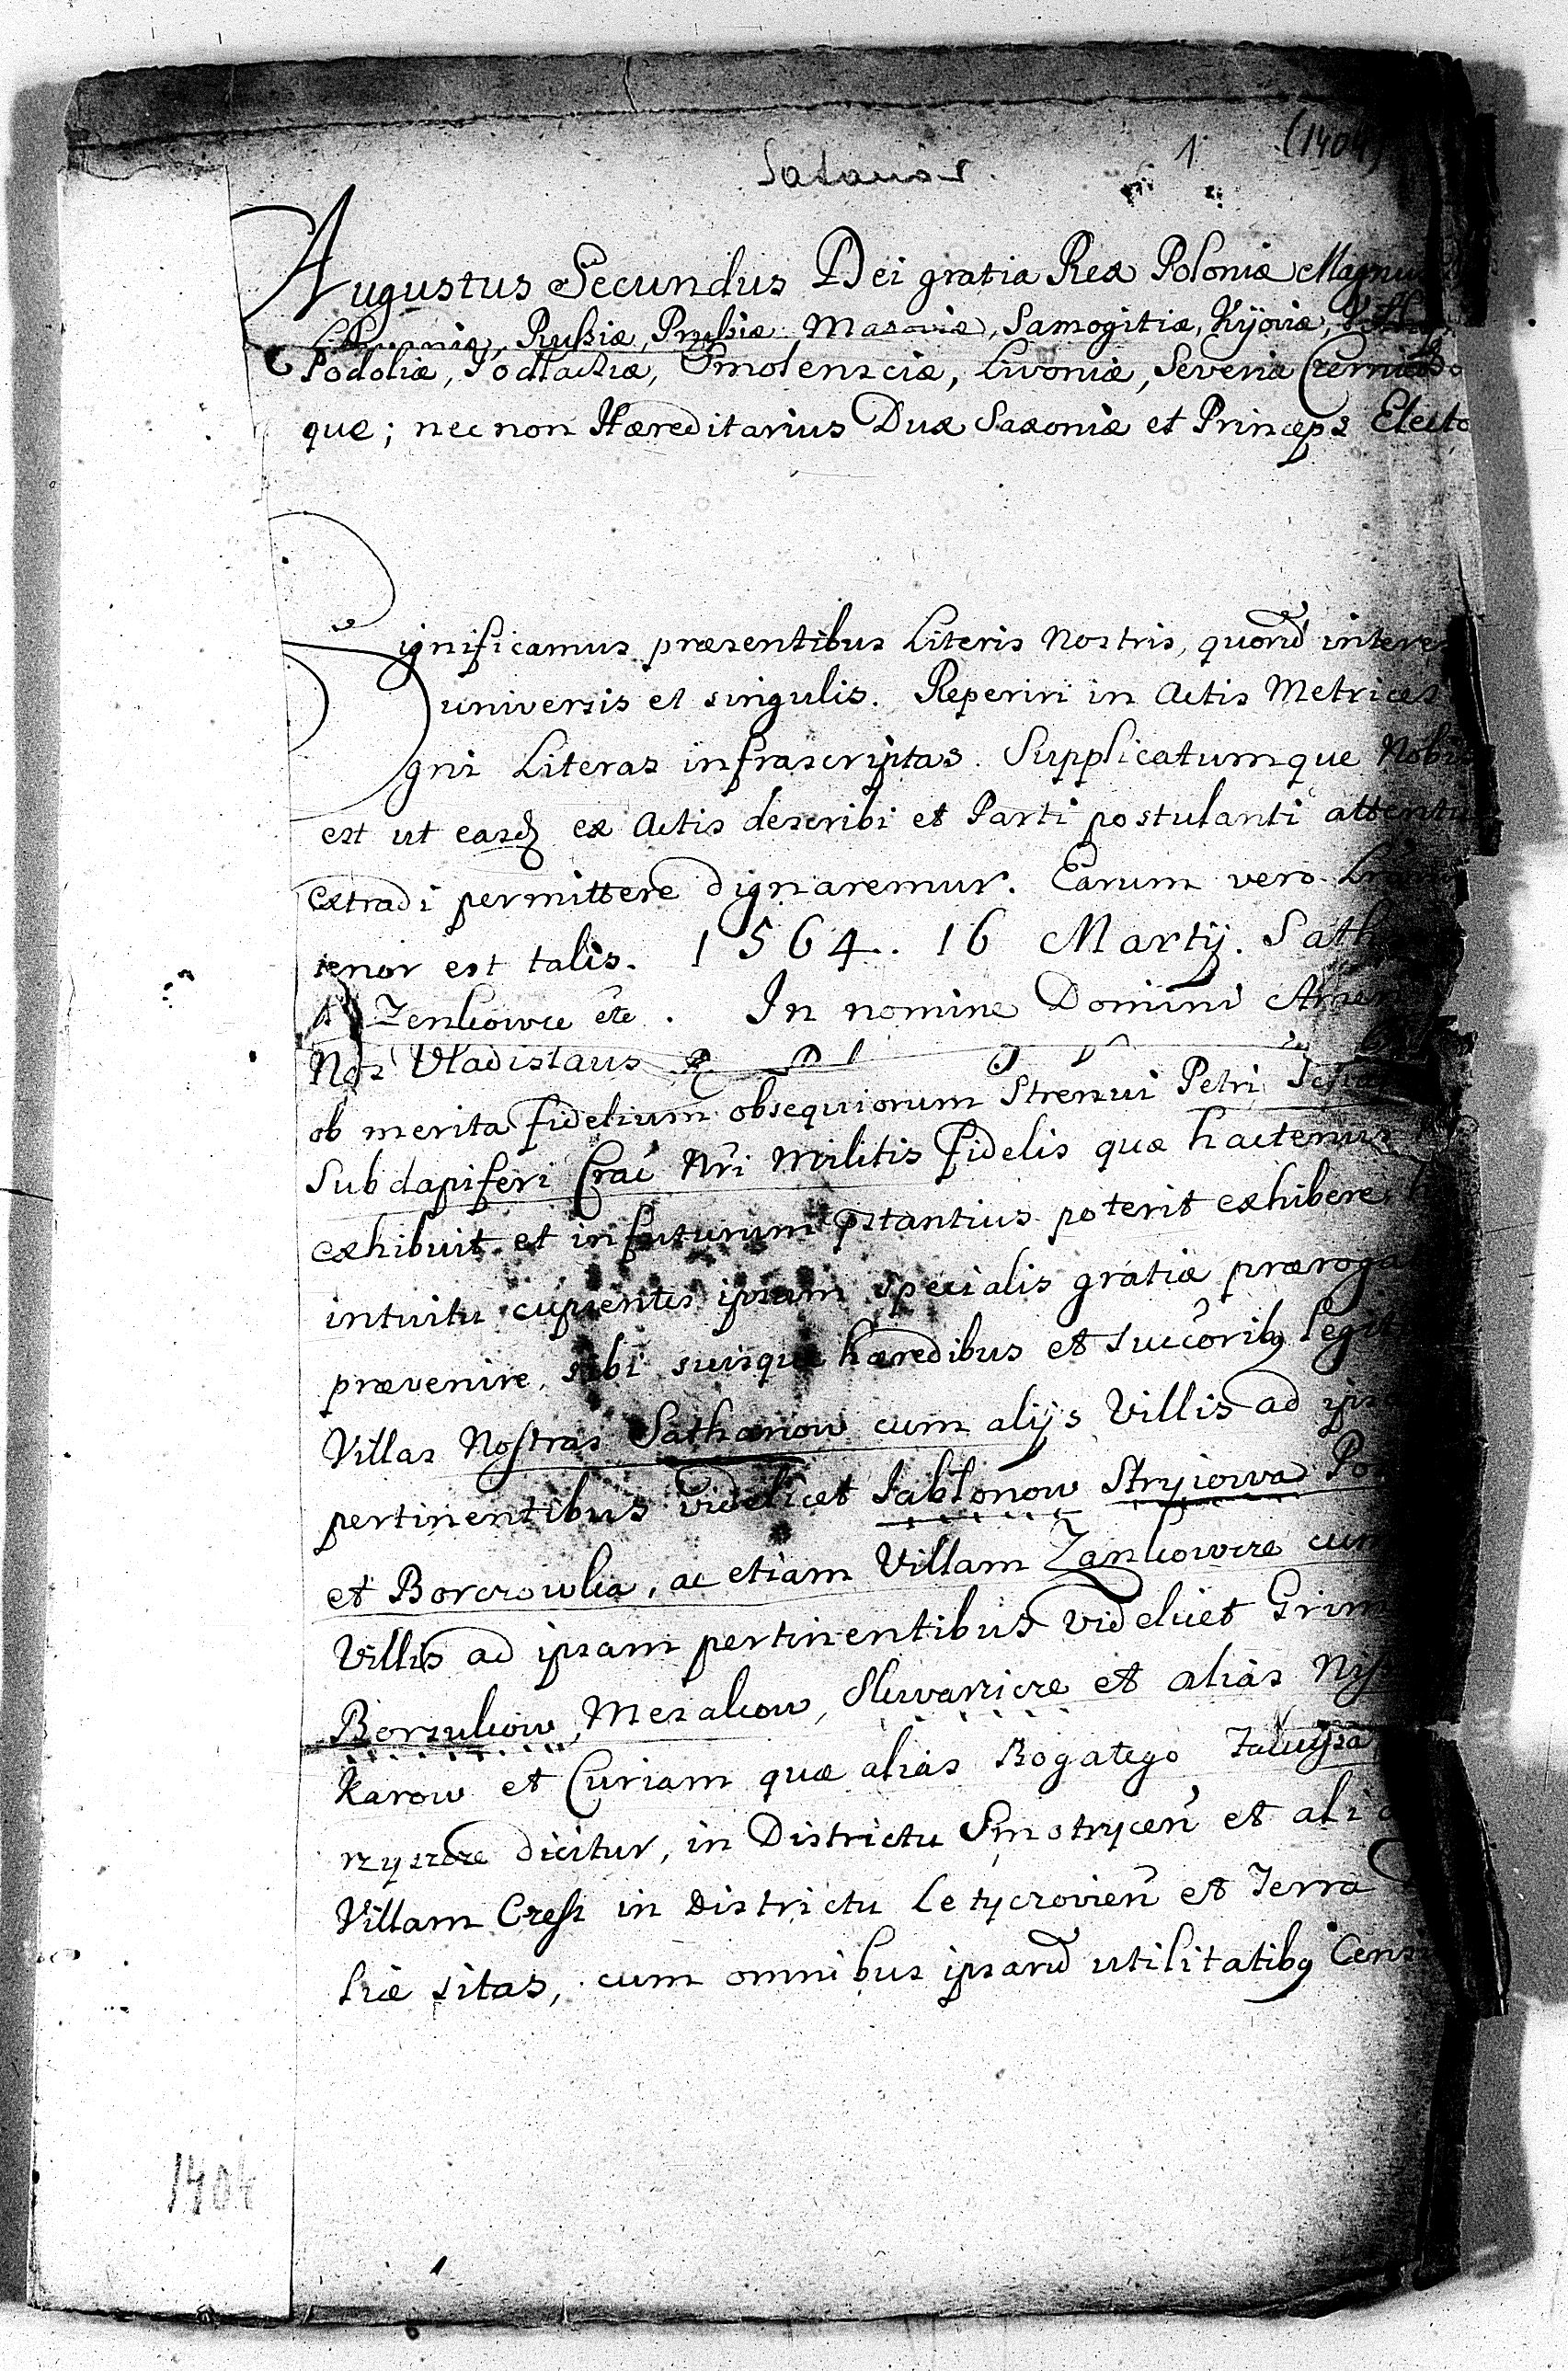 Satanów.
1
(1404)
Augustus Secundus Dei gratia Rex Poloniæ Magnu
Russiæ, Prussiæ, Masoviæ, Samogitiæ, Kijoviæ,
Podoliæ, Podlachiæ, Smolensciæ, Livoniæ, Severiæ Czernied
que; nec non Hæreditarius Dux Saxoniæ et Princeps Electo
Significamus præsentibus Literis Nostris, quorũ intere
universis et singulis. Reperiri in Actis Metrices
gni Literas infrascriptas. Supplicatumque Nobi
est ut easd ex Actis describi et Parti postulanti
extradi permittere dignaremur. Earum vero
tenor est talis. 1564. 16 Martij. Sath
Zenkowce etc. In nomine Domini Amen
Nos Vladislaus
ob merita fidelium obsequiorum Strenui Petri
Subdapiferi Crac̃ Nr̃i Militis fidelis quæ hactenus
exhibuit et in futurum p̃stantius poterit exhibere
intuitu cupientes ipsum specialis gratiæ præroga
prævenire, sibi suisque hæredibus et succ̃orib9 legit
Villas Nostras Sathanow cum alijs Villis ad ipsa
pertinentibus videlicet Jablonow Stryiowa Po
et Borczowka, ac etiam Villam Zankowcze cum
Villis ad ipsam pertinentibus videlicet Grim
Borsukow, Mezakow, Skwarzicze et alias
Karow et Curiam quæ alias Bogatego
rzyszcze dicitur, in Districtu Smotrycen̄ et
Villam Czesz in Districtu Letyczovien̄ et Terra
liæ sitas, cum omnibus ipsarũ utilitatib9 Cens
1404